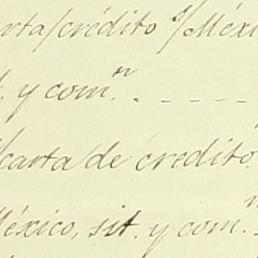 carta/crédito s/ Méxi
t. y com.n - - - - -
/carta/de crédito
México, sit. y com.